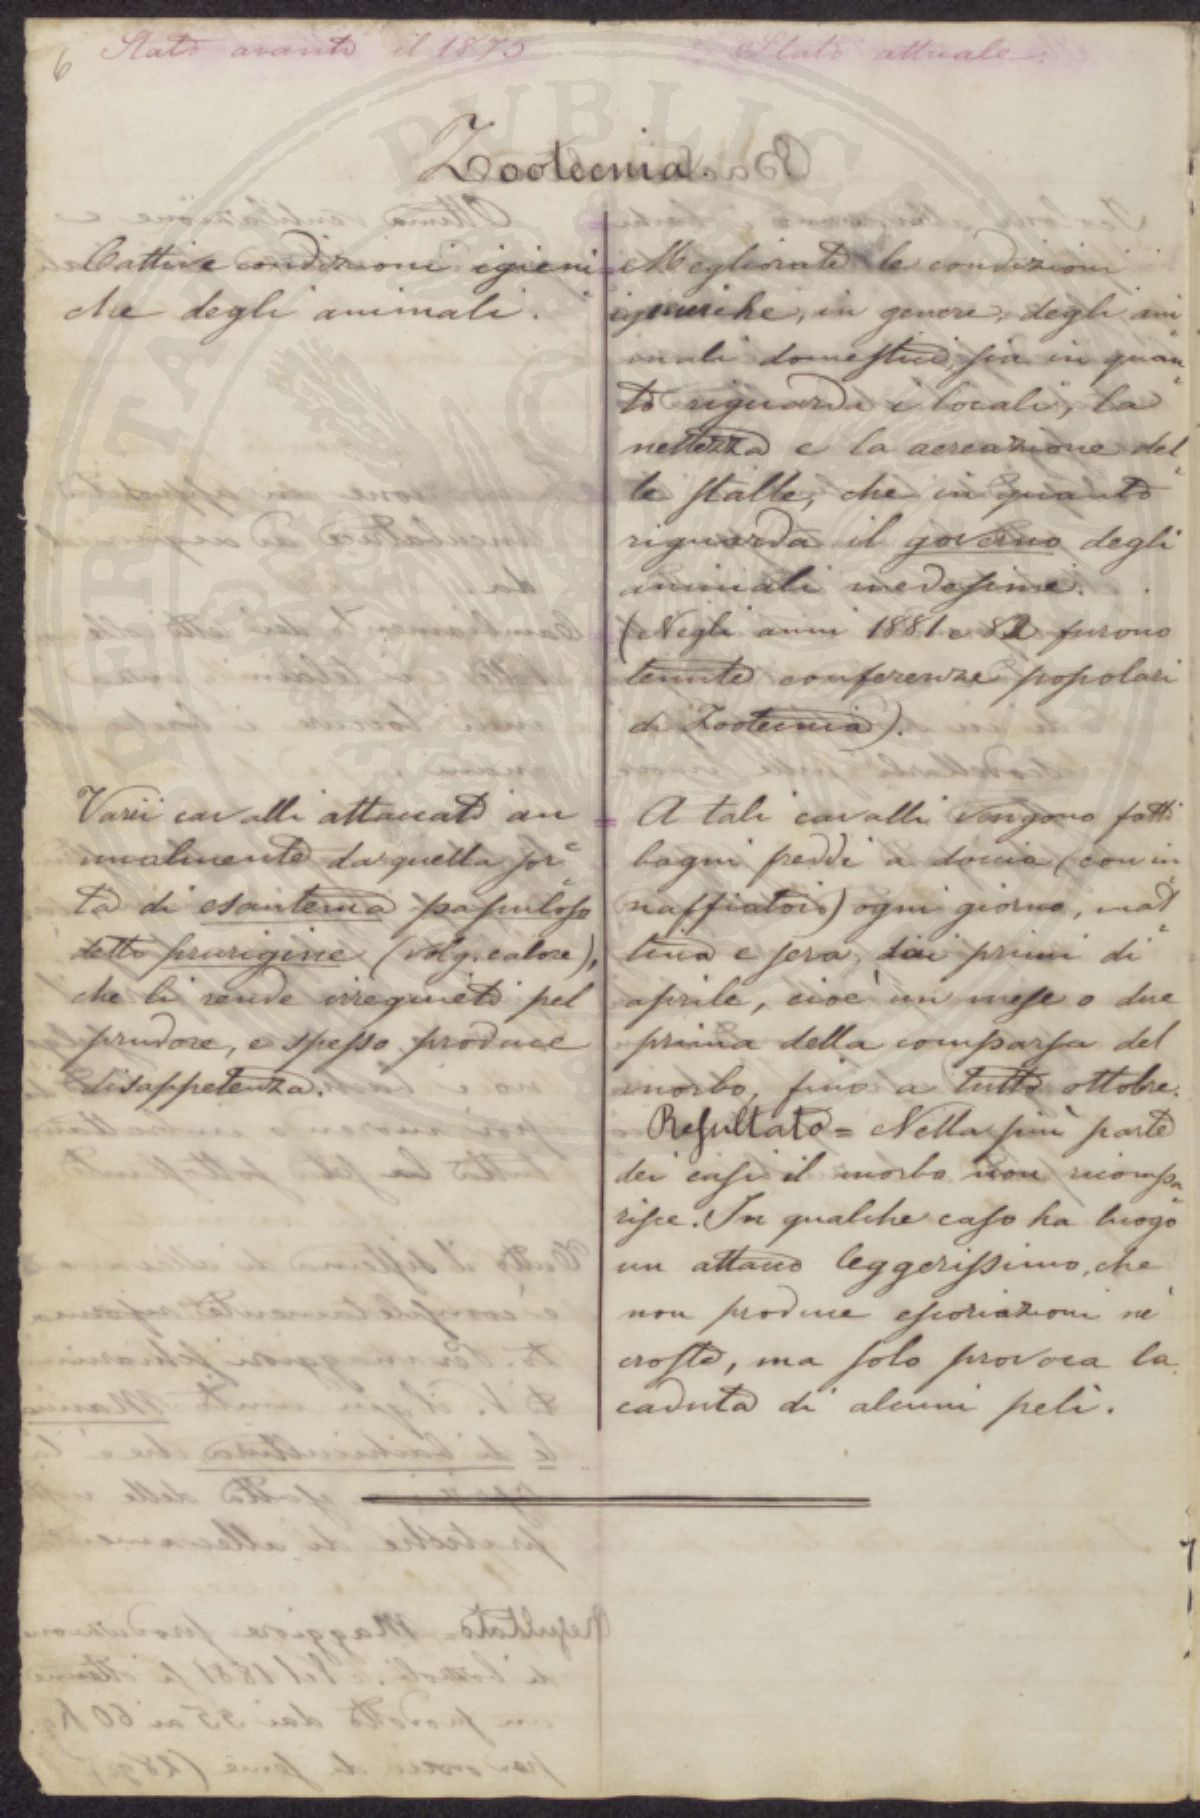 6 Stato avanti il 1875
Stato attuale.
Zootecnia.
Cattive condizioni igieni=
che degli animali.
Megliorate le condizioni
igieniche, in genere, degli ani=
mali domestici, sia in quan=
to riguarda i locali, la
nettezza e la aereazione del=
le stalle, che in quanto
riguarda il governo degli
animali medesimi.
(Negli anni 1881 e 82 furono
tenute conferenze popolari
di Zootecnia).
Varii cavalli attaccati an=
nualmente da quella sor=
ta di esantema papuloso
detto prurigine (volg. calore),
che li rende irrequieti pel
prudore, e spesso produce
disappetenza.
A tali cavalli vengono fatti
bagni freddi a doccia (con in=
naffiatoio) ogni giorno, mat=
tina e sera, dai primi di
aprile, cioè un mese o due
prima della comparsa del
morbo, fino a tutto ottobre.
Resultato = Nella più parte
dei casi il morbo non ricompa=
risce. In qualche caso ha luogo
un attacco leggerissimo, che
non produce escoriazioni nè
croste, ma solo provoca la
caduta di alcuni peli.